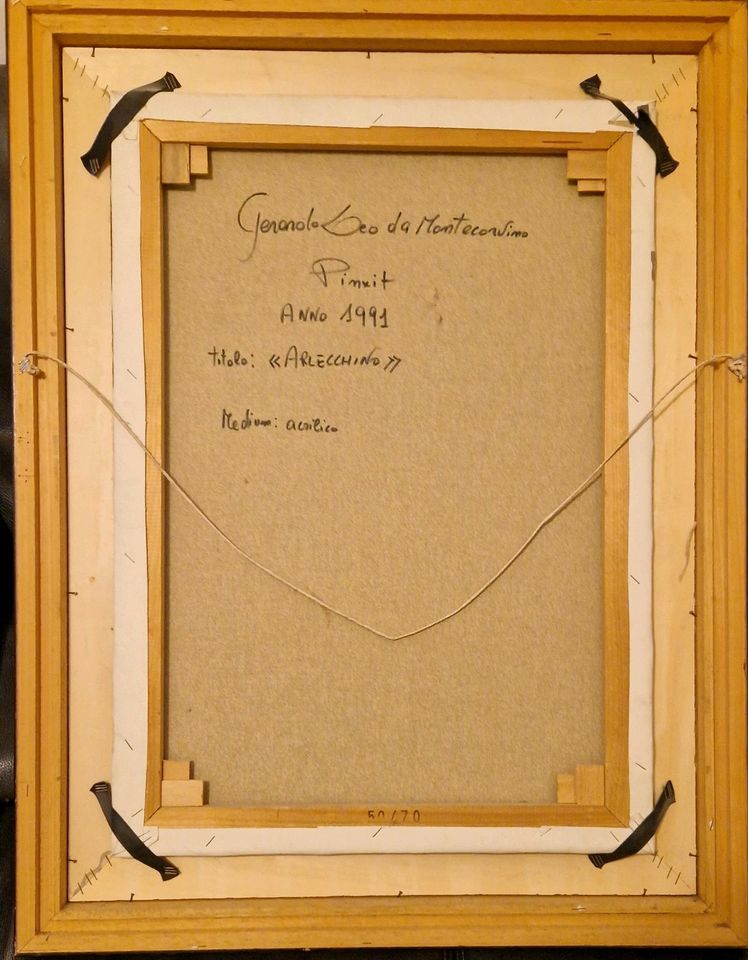 Gerardo Leo da Montecorvino
Pinxit
ANNO 1991
titolo: «ARLECCHINO»
Medium: acrilico
50/70